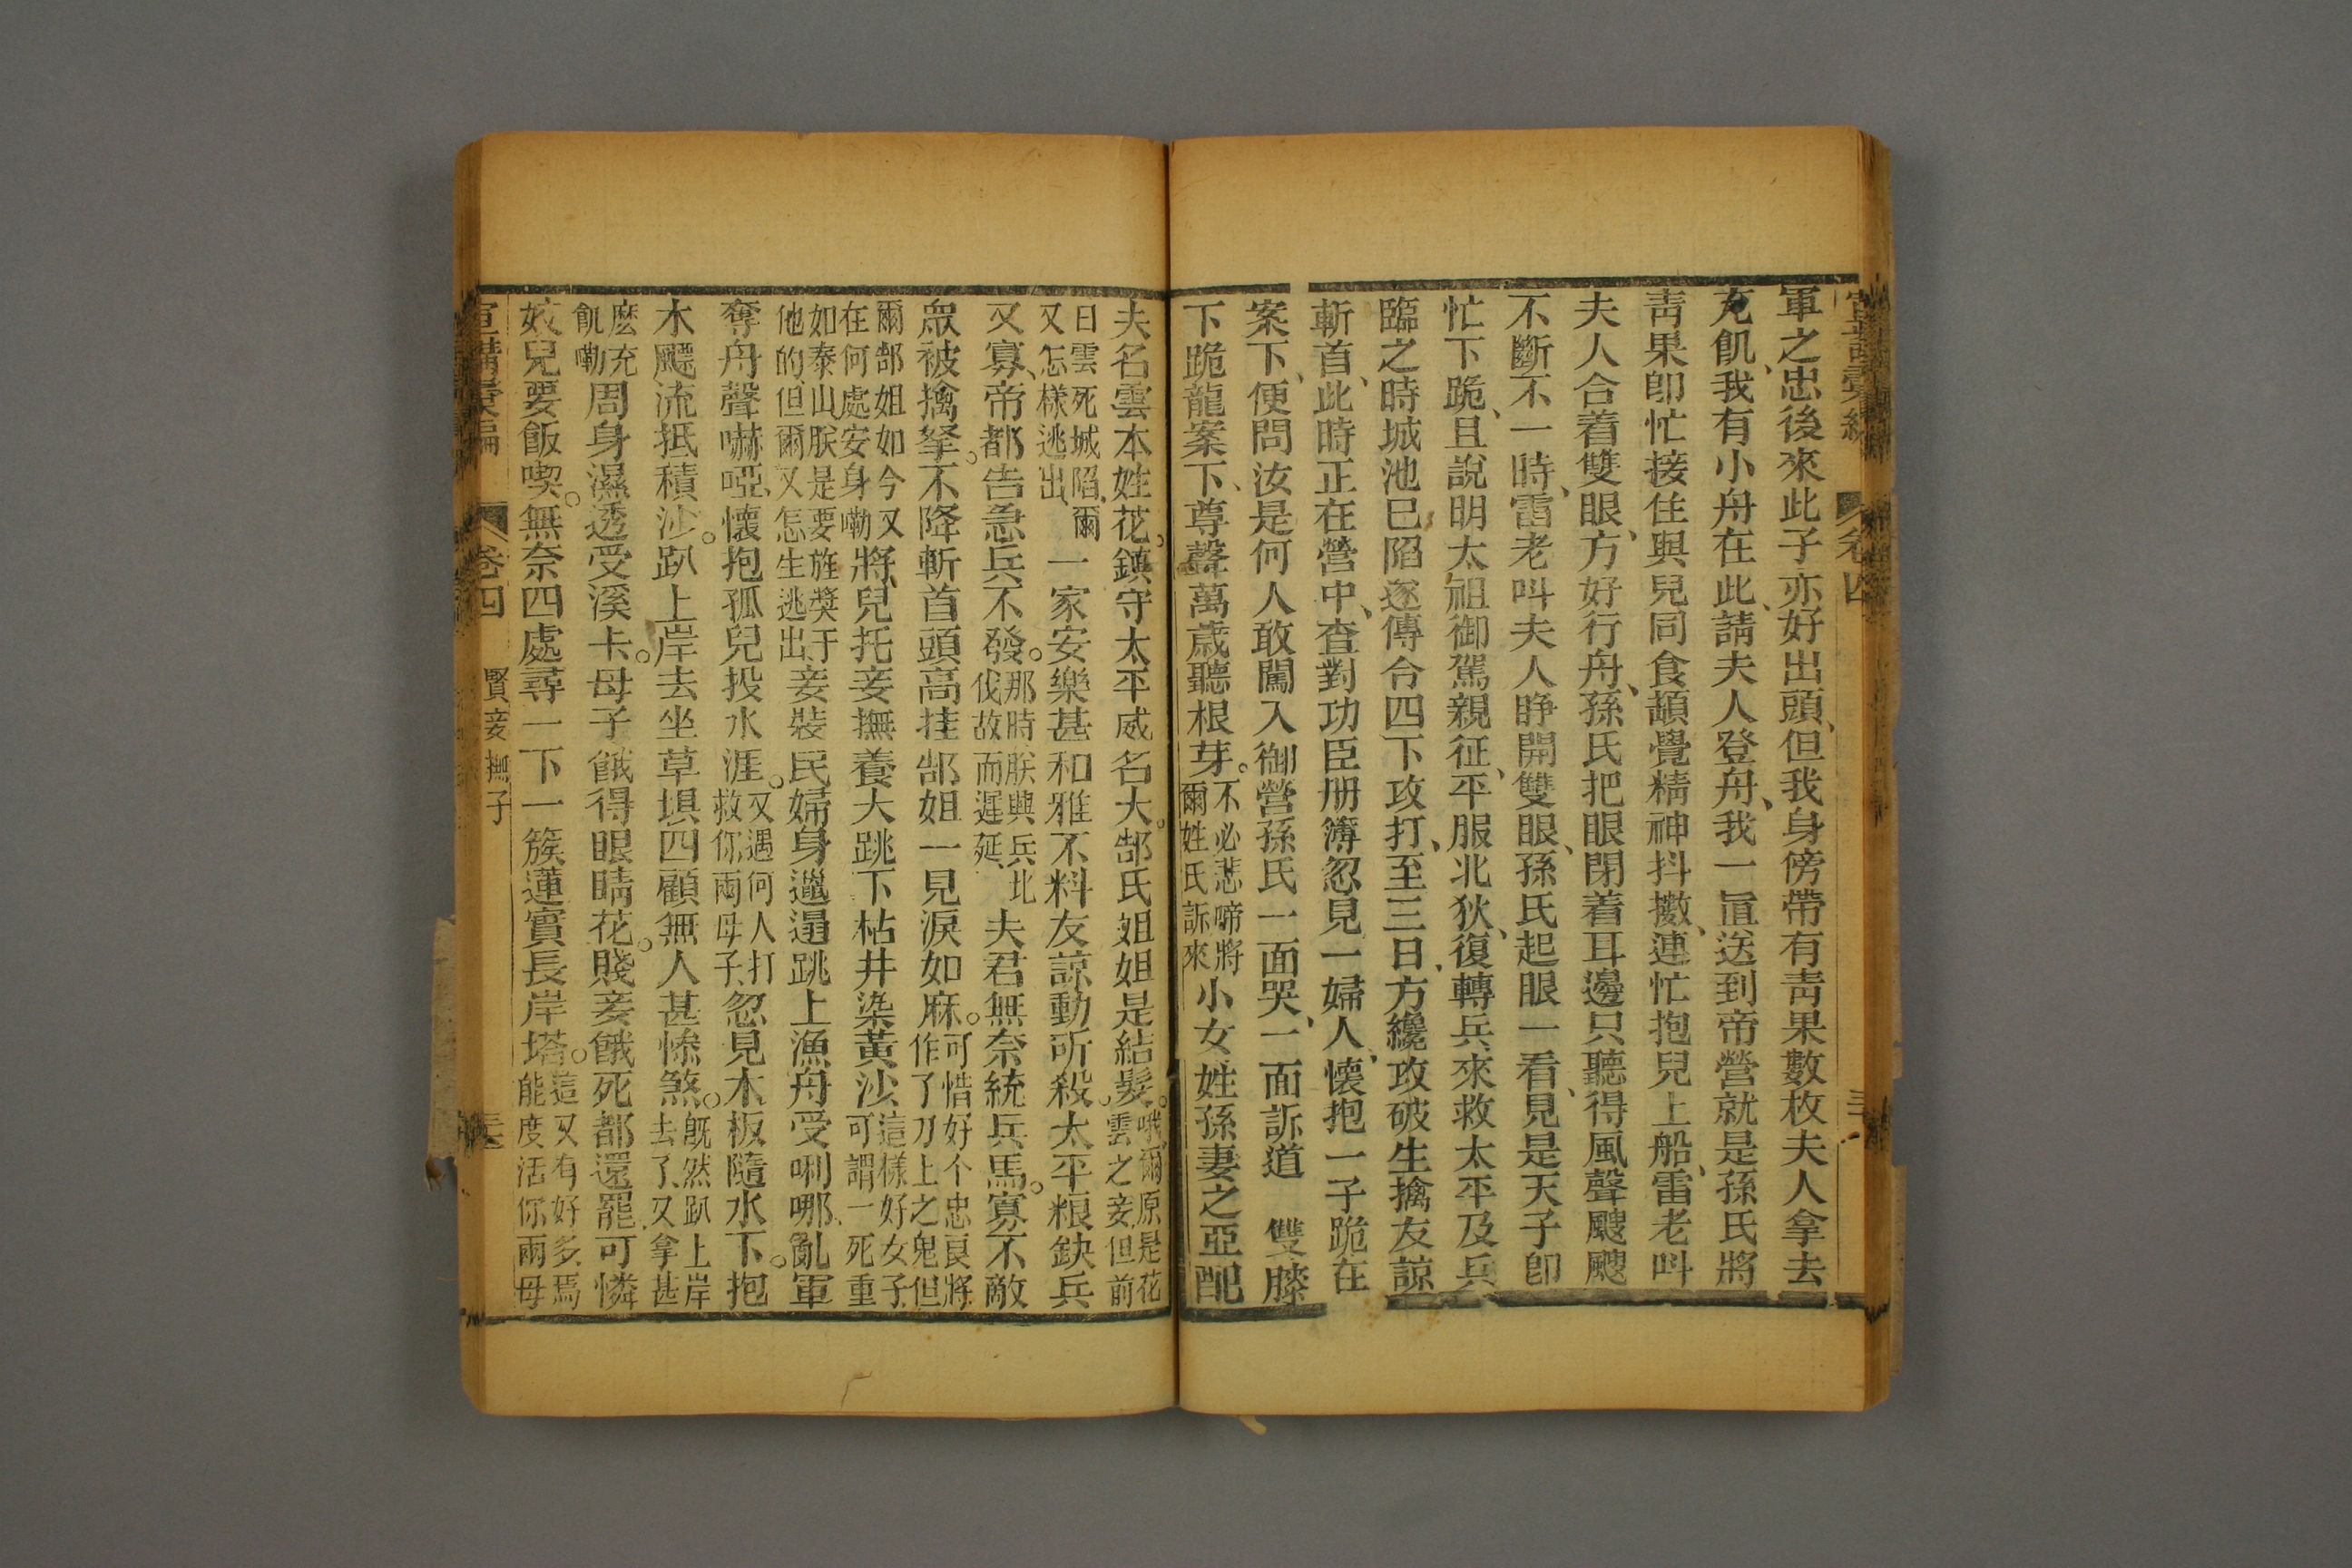 軍之忠後來此子亦好出頭、但我身傍帶有靑果數枚夫人拿去
充飢、我有小舟在此、請夫人登舟、我一直送到帝營就是孫氏將
靑果卽忙接住與兒同食頓覺精神抖擻、連忙抱兒上船、雷老呌
夫人合着雙眼、方好行舟、孫氏把眼閉着耳邊只聽得風聲颼颼
不斷不一時、雷老呌夫人睁開雙眼、孫氏起眼一看、見是天子卽
忙下跪、且說明太祖御駕親征、平服北狄、復轉兵來救太平及兵
臨之時城池已陷遂傳令四下攻打、至三日、方纔攻破生擒友諒
斬首、此時正在營中、查對功臣册簿忽見一婦人、懷抱一子跪在
案下、便問汝是何人敢闖入御營孫氏一面哭、一面訴道　雙膝
下跪龍案下、尊聲萬歲聽根芽。不必悲啼將爾姓氏訴來小女姓孫妻之亞配
夫名雲本姓花。鎮守太平威名大。郜氏姐姐是結髮。哦、爾原是花雲之妾、但前
日雲死城陷、爾又怎樣逃出、一家安樂甚和雅不料友諒動所殺。太平粮缺兵
又寡、帝都告急兵不發。那時朕與兵北伐故而遲延、夫君無奈統兵馬。寡不敵
眾被擒拏。不降斬首頭高挂郜姐一見淚如麻。可惜好个忠良將作了刀上之鬼但
爾郜姐如今又在何處安身嘞將兒托妾撫養大跳下枯井染黃沙、這樣好女子可謂一死重
如泰山朕是要旌獎于他的、但爾又怎生逃出、妾裝民婦身邋遢跳上漁舟受唎哪、亂軍
奪舟聲嚇啞、懷抱孤兒投水涯。又遇何人打救你兩母子、忽見木板隨水下。抱
木飃流抵積沙。趴上岸去坐草埧四顧無人甚慘煞。旣然趴上岸去了、又拿甚
麽充飢嘞周身濕透受溪卡。母子餓得眼睛花。賤妾餓死都還罷可憐
姣兒要飯喫。無奈四處尋一下一簇蓮實長岸塔。這又有好多焉能度活你兩母
宣講彙編　卷四　賢妾撫子